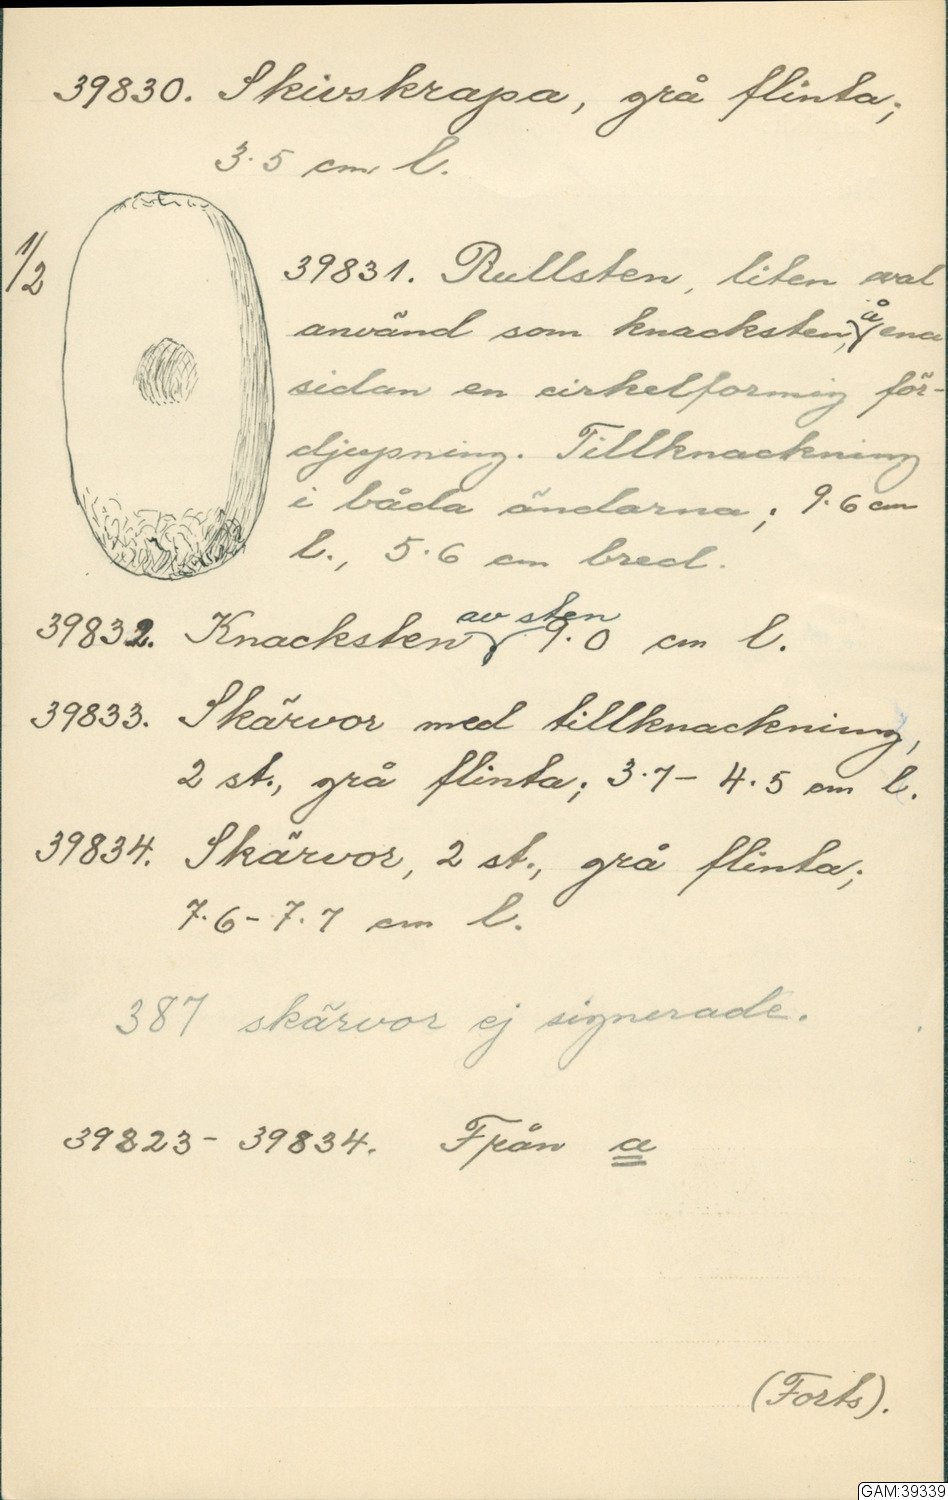 39830. Skivskrapa, grå flinta;
3.5 cm l.
1/2
39831. Rullsten, liten oval
använd som knacksten, å ena
sidan en cirkelformig för-
djupning. Tillknackning
i båda ändarna; 9.6 cm
l., 5.6 cm bred.
39832. Knacksten av sten 9.0 cm l.
39833. Skärvor med tillknackning,
2 st., grå flinta; 3.7 - 4.5 cm l.
39834. Skärvor, 2 st., grå flinta;
7.6 - 7.7 cm l.
387 skärvor ej signerade.
39823 - 39834. Från a
(Forts).
GAM:39339